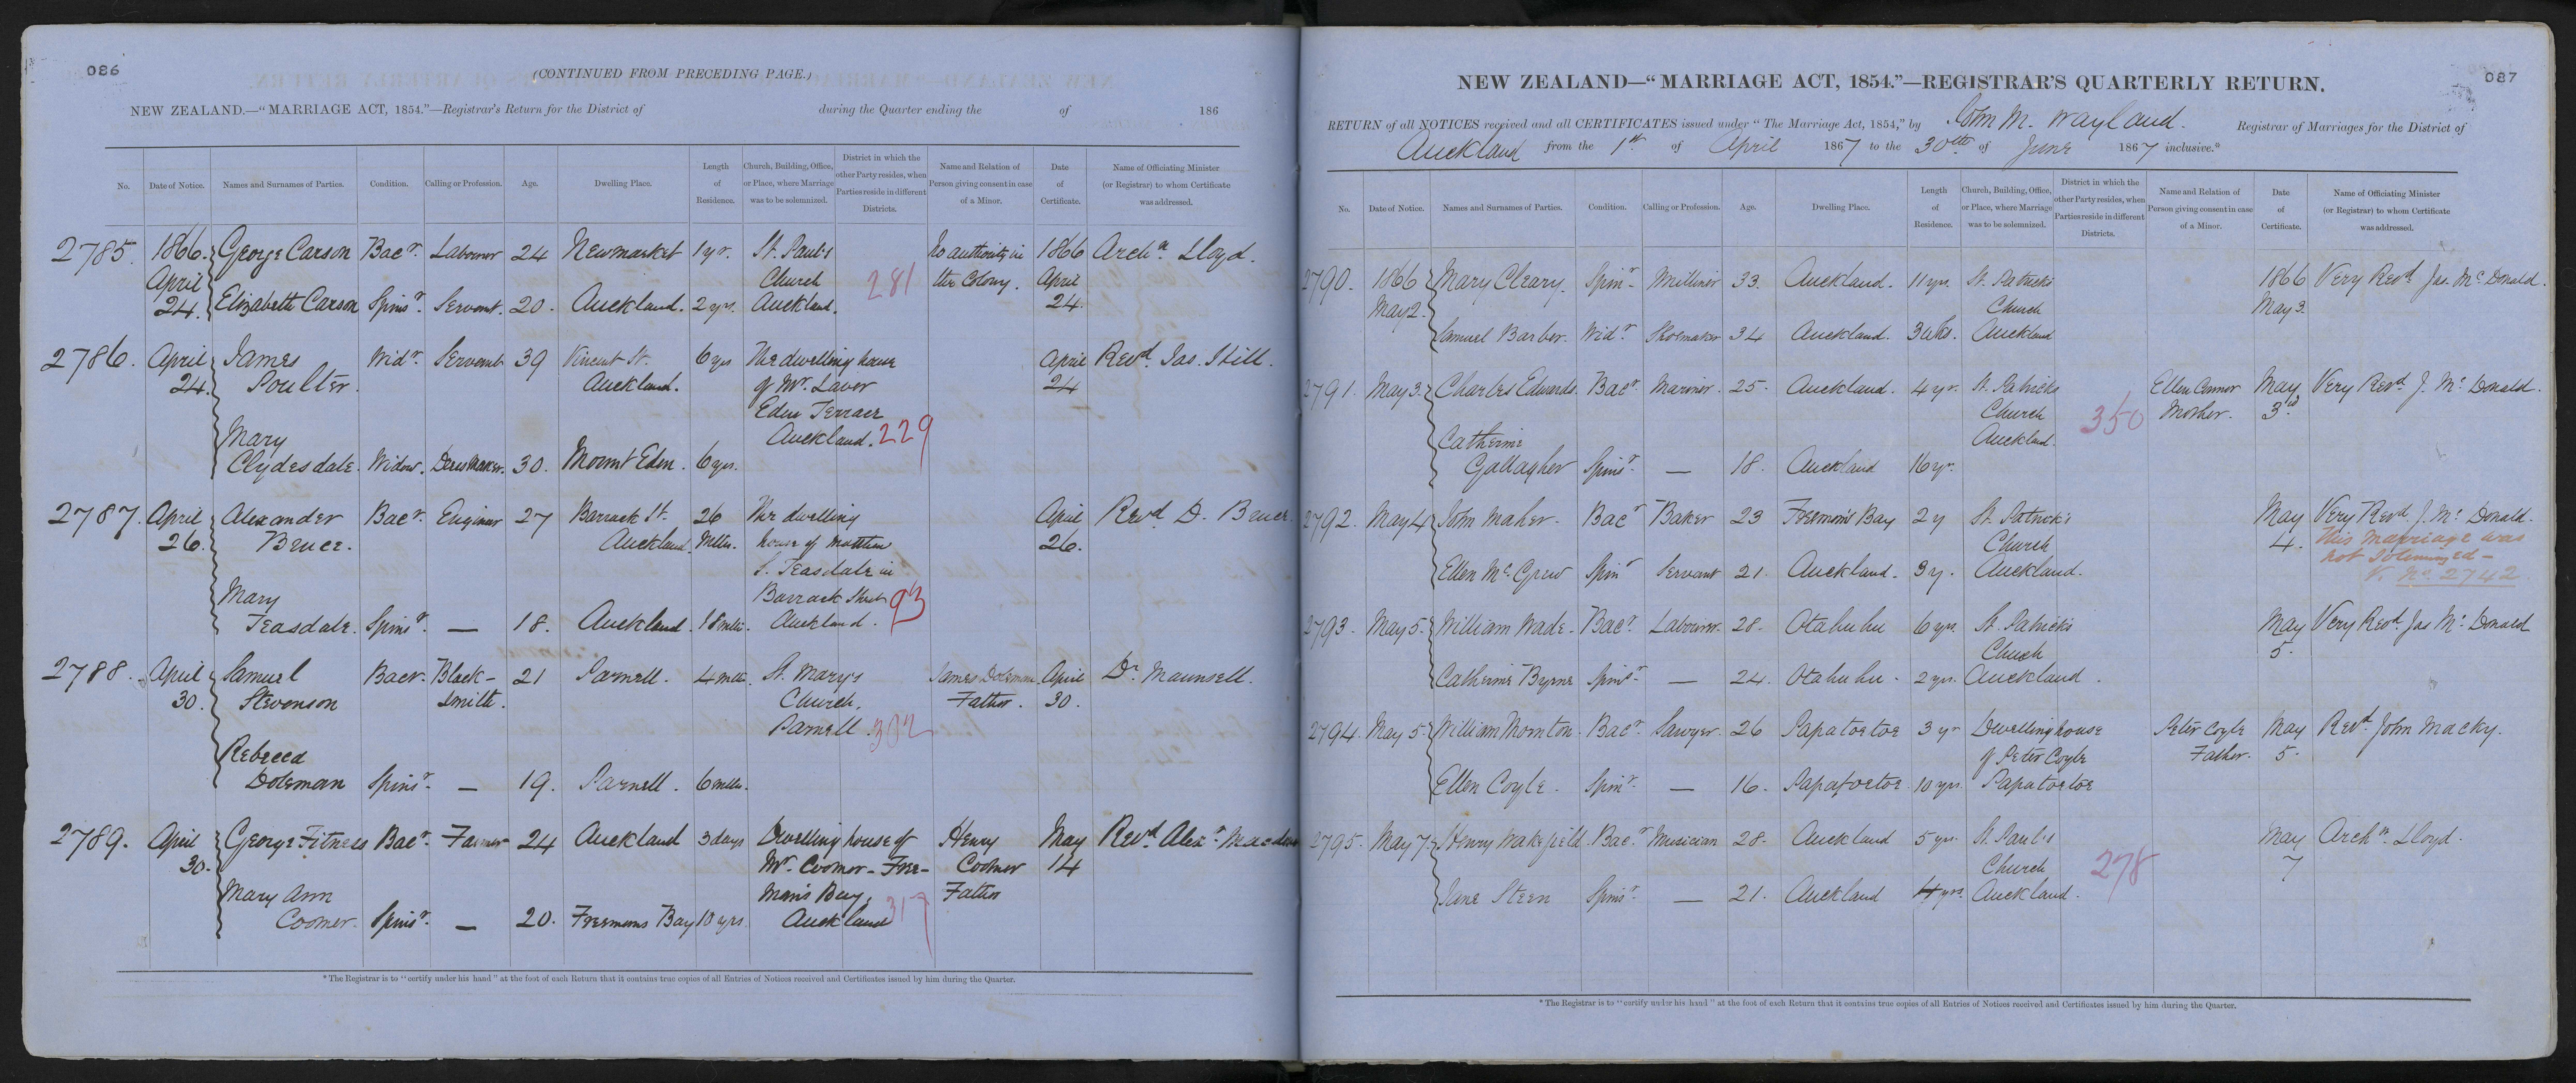 086
(CONTINUED FROM PRECEDING PAGE.)
NEW ZEALAND.—"MARRIAGE ACT, 1854."—Registrar's Return for the District of during the Quarter ending the of 186
No. Date of Notice. Names and Surnames of Parties. Condition. Calling or Profession. Age. Dwelling Place. Length of Residence. Church, Building, Office, or Place, where Marriage was to be solemnized. District in which the other Party resides, when Parties reside in different Districts. Name and Relation of Person giving consent in case of a Minor. Date of Certificate. Name of Officiating Minister (or Registrar) to whom Certificate was addressed.
2785. 1866. George Carson Bacr. Labourer 24 Newmarket 1 yr. St. Paul's No authority in 1866 Archn Lloyd.
April Church 281 the Colony. April
24. Elizabeth Carson Spinsr. Servant. 20. Auckland. 2 yrs. Auckland. 24.
2786. April James Widr. Servant 39 Vincent St. 6 yrs The dwelling house April Revd Jas. Hill.
24. Poulter. Auckland. of Mr. Laver 24
Eden Terrace
Mary Auckland. 229
Clydesdale. Widow. Dressmaker. 30. Mount Eden. 6 yrs.
2787. April Alexander Bacr. Engineer 27 Barrack St. 26 The dwelling April Revd D. Bruce.
26. Bruce. Auckland. Mths. house of Matthew 26.
S. Teasdale in
Mary Barrack Street 93
Teasdale. Spinsr. — 18. Auckland. 18 mths. Auckland.
2788. April Samuel Bacr. Black- 21 Parnell. 4 mths. St. Mary's James Doleman April Dr. Maunsell.
30. Stevenson smith. Church, Father. 30.
Parnell. 302
Rebecca
Doleman Spinsr. — 19. Parnell. 6 mths.
2789. April George Fitness Bacr. Farmer 24 Auckland 3 days Dwelling house of Henry May Revd Alexr.
30. Mr. Coomer - Free- Coomer 14
Mary Ann mans Bay, Father
Coomer. Spinsr. — 20. Freemans Bay 10 yrs. Auckland 317
*The Registrar is to "certify under his hand" at the foot of each Return that it contains true copies of all Entries of Notices received and Certificates issued by him during the Quarter.
087
NEW ZEALAND—"MARRIAGE ACT, 1854."—REGISTRAR'S QUARTERLY RETURN.
RETURN of all NOTICES received and all CERTIFICATES issued under "The Marriage Act, 1854," by John M. Wayland. Registrar of Marriages for the District of
Auckland from the 1st of April 1867 to the 30th of June 1867 inclusive.*
No. Date of Notice. Names and Surnames of Parties. Condition. Calling or Profession. Age. Dwelling Place. Length of Residence. Church, Building, Office, or Place, where Marriage was to be solemnized. District in which the other Party resides, when Parties reside in different Districts. Name and Relation of Person giving consent in case of a Minor. Date of Certificate. Name of Officiating Minister (or Registrar) to whom Certificate was addressed.
2790. 1866 Mary Cleary. Spinr. Milliner 33. Auckland. 11 yrs. St. Patrick's 1866 Very Revd Jas. McDonald.
May 2. Church May 3.
Samuel Barber. Widr. Shoemaker 34 Auckland. Auckland
2791. May 3. Charles Edwards. Bacr Mariner. 25. Auckland. 4 yr. St. Patricks Ellen Connor May Very Revd J. McDonald.
Church 350 Mother. 3rd
Catherine Auckland.
Gallagher Spinsr. — 18. Auckland 16 yr.
2792. May 4 John Maher. Bacr Baker 23 Freeman's Bay 2 y St. Patrick's May Very Revd. J. McDonald.
Church 4. This Marriage was
Ellen McGrew Spinr Servant 21. Auckland. 3 y. Auckland. not solemnized—
V. No. 2742
2793. May 5. William Wade. Bacr. Labourer. 28. Otahuhu 6 yrs. St. Patrick's May Very Revd. Jas McDonald
Church 5.
Catherine Byrne Spinsr. — 24. Otahuhu. 2 yrs. Auckland.
2794. May 5. William Thornton. Bacr. Sawyer 26 Papatoetoe 3 yr Dwelling house Peter Coyle May Revd. John Macky.
of Peter Coyle Father. 5.
Ellen Coyle. Spinr. — 16. Papatoetoe 10 yrs. Papatoetoe
2795. May 7. Henry Wakefield. Bacr. Musician 28. Auckland 5 yrs. St. Paul's May Archn. Lloyd.
Church 278 7
Jane Steen Spinsr. — 21. Auckland 4 yrs. Auckland.
*The Registrar is to "certify under his hand" at the foot of each Return that it contains true copies of all Entries of Notices received and Certificates issued by him during the Quarter.